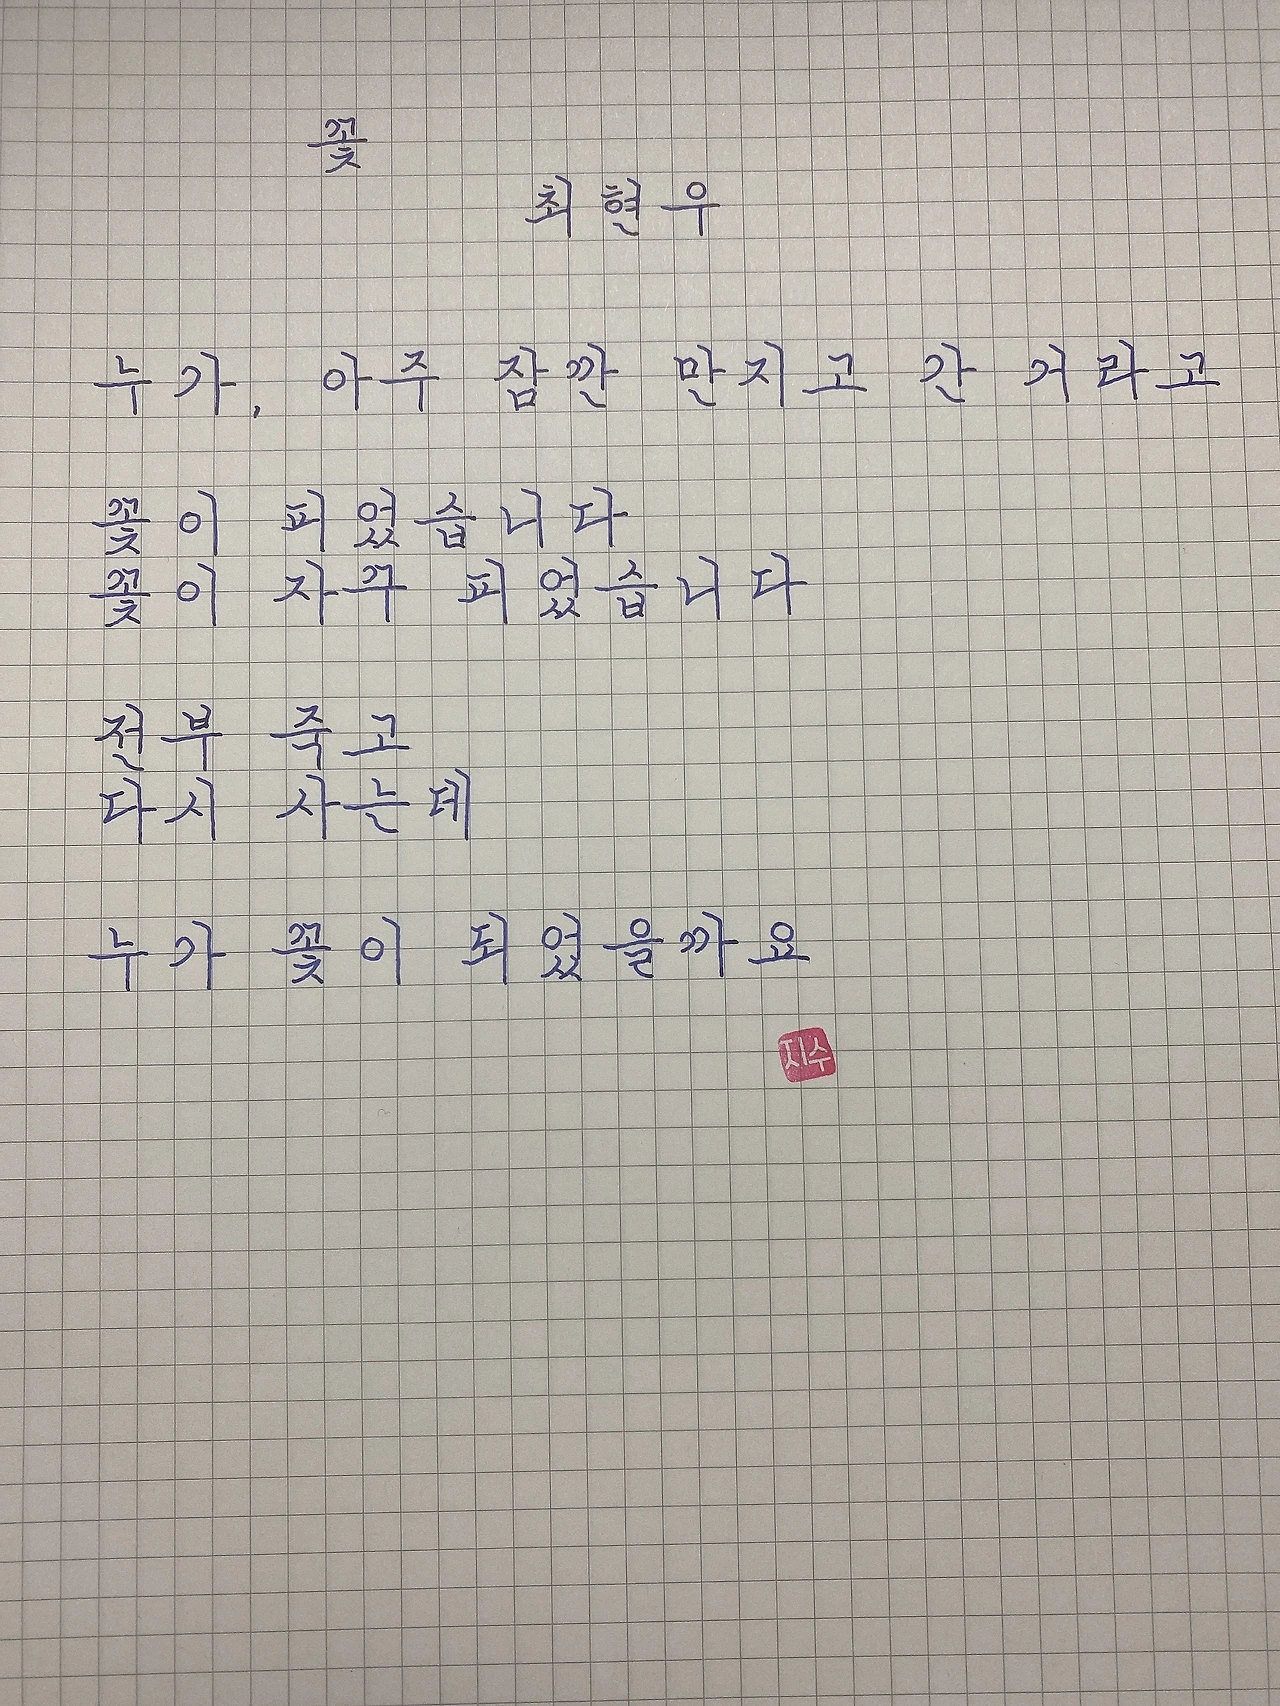 꽃
최현우
누가, 아주 잠깐 만지고 간 거라고
꽃이 피었습니다
꽃이 자꾸 피었습니다
전부 죽고
다시 사는데
누가 꽃이 되었을까요
지수